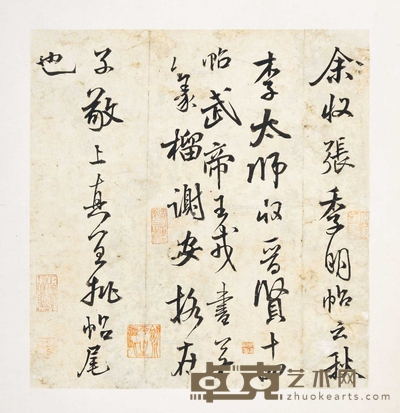 余收張季明帖云秋
李太師收晉賢十四
帖武帝王戎書若
篆榴謝安格在
子敬上真宜批帖尾
也
卓克艺术网
www.zhuokearts.com